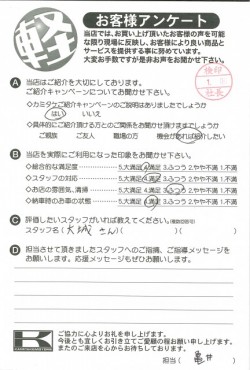 軽
お客様アンケート
当店では、お買い上げ頂いたお客様の声を可能
な限り現場に反映し、お客様により良い商品と
サービスを提供する事に努めています。
大変お手数ですが是非お声をお聞かせ下さい。
検印
社長
A 当店はご紹介を大切にしております。
ご紹介キャンペーンについてお聞かせ下さい
◇カミタケご紹介キャンペーンのご説明はありましたでしょうか
はい いいえ
◇具体的にご紹介頂ける方とのご関係をお聞かせ頂けますでしょうか
ご親族 ご友人 職場の方 機会があれば紹介したい
B 当店を実際にご利用になった印象をお聞かせ下さい。
◇総合的な満足度 5.大満足 4.満足 3.ふつう 2.やや不満 1.不満
◇スタッフの対応 5.大満足 4.満足 3.ふつう 2.やや不満 1.不満
◇お店の雰囲気、清掃 5.大満足 4.満足 3.ふつう 2.やや不満 1.不満
◇納車時のお車の状態 5.大満足 4.満足 3.ふつう 2.やや不満 1.不満
C 評価したいスタッフがいれば教えてください。(複数回答可)
スタッフ名( 大城 さん )( )
D 担当させて頂きましたスタッフへのご指摘、ご指導メッセージを
お願いします。応援メッセージもぜひお願いします。
K
ご協力に心よりお礼を申し上げます。
今後とも宜しくお引き立てご愛顧の程お願い申し上げます。
またのご来店を心からお待ちしております。
担当( 亀井 )